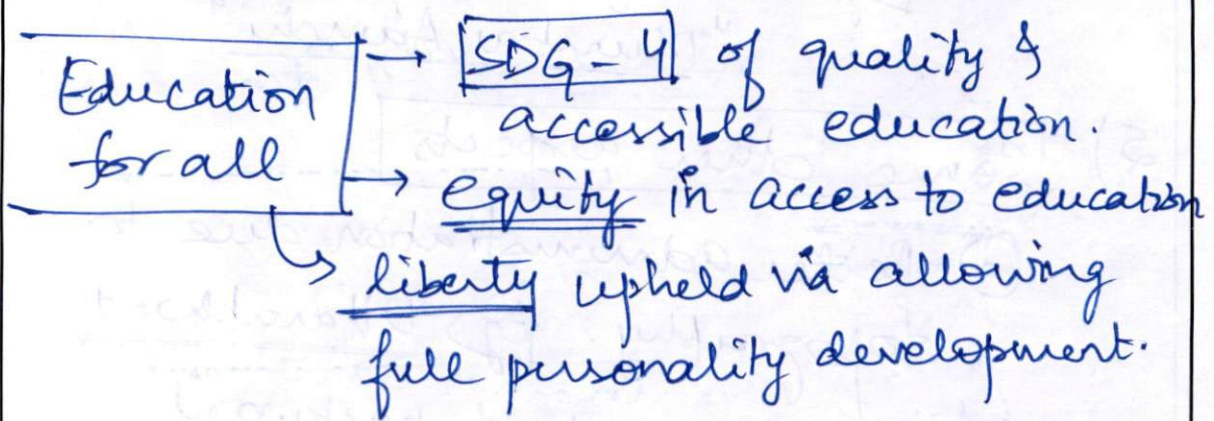 Education
for all
→ SDG-4 of quality &
accessible education.
→ equity in access to education
↳ liberty upheld via allowing
full personality development.